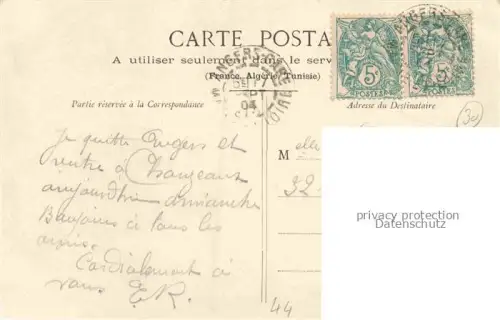 CARTE POSTA
A utiliser seulement dans le serv
(France, Algérie, Tunisie)
ANGERS-GARE
04
5c
POSTES
5c
POSTES
30
Partie réservée à la Correspondance
Adresse du Destinataire
Je quitte Angers et
rentre à
aujourd'hui dimanche
Bonjours à tous les
amis.
Cordialement à
vous E.R.
M elle
32
privacy protection
Datenschutz
44